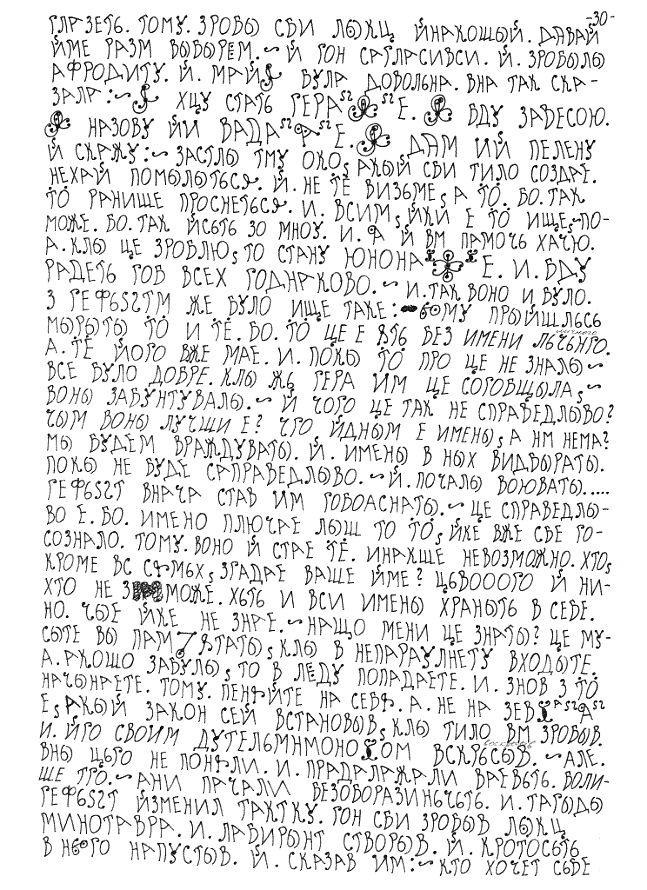 -30-
ГЛАЗЕТЬ. ТОМУ. ЗРОБЫ СВИ ЛЫКЦ ЙНАКОШЫЙ. ДАВАЙ
ЙМЕ РАЗМ ВЫБЫРЕМ.~Й ГОН САГЛАСИВСИ. Й. ЗРОБЫЛЫ
АФРОДИТУ. Й. МАЙ БУЛА ДОВОЛЬНА. ВНА ТАК СКА-
ЗАЛА:~ ХЦУ СТАТЬ ГЕРА Е. ВДУ ЗАВЕСОЮ.
НАЗОВУ ЙИ ВАДА Е. ДАМ ИЙ ПЕЛЕНУ
Й СКАЖУ:~ЗАСТЛЫ ТМУ ОКО, АКЫЙ СВИ ТИЛО СОЗДАЕ.
НЕХАЙ ПОМЫЛЫТЬСЯ. Й. НЕ ТЕ ВИЗЬМЕ, А ТО. БО. ТАК
ТО РАНИЩЕ ПРОСНЕТЬСЯ. И. ВСИМ, ЙКИ Е ТО ИЩЕ,~ПО-
МОЖЕ. БО. ТАК ЙСЕТЬ ЗО МНОУ. И. А Й ВМ ПАМОЧЬ ХАЧЮ.
А. КЛЫ ЦЕ ЗРОБЛЮ, ТО СТАНУ ЮНОНА Е. И. ВДУ
РАДЕТЬ ГОВ ВСЕХ ГОДНАКОВО.~И. ТАК ВОНО И БУЛО.
З ГЕФЬSТМ ЖЕ БУЛО ИЩЕ ТАКЕ:~ЬОМУ ПРЫЙШЛЬСЬ
МЫРЫТЫ ТО И ТЕ. БО. ТО ЦЕ Е ЯТЬ БЕЗ ИМЕНИ ЛЬЧЬНГО.
А. ТЕ ЙОГО ВЖЕ МАЕ. И. ПОКЫ ТО ПРО ЦЕ НЕ ЗНАЛЫ~
ВСЕ БУЛО ДОБРЕ. КЛЫ ЖЬ ГЕРА ИМ ЦЕ СОГОВЩЫЛА,~
ВОНЫ ЗАБУНТУВАЛЫ.~Й ЧОГО ЦЕ ТАК НЕ СПРАВЕДЛЫВО?
ЧЫМ ВОНЫ ЛУЧШИ Е? ЧГО ЙДНЫМ Е ИМЕНЫ, А НМ НЕМА?
МЫ БУДЕМ ВРАЖДУВАТЫ. Й. ИМЕНЫ В НЫХ ВИДБЫРАТЫ.
ПОКЫ НЕ БУДЕ САПРАВЕДЛЫВО.~Й. ПОЧАЛЫ ВОЮВАТЫ.....
ГЕФЬSТ ВНАЧА СТАВ ИМ ГОБОАСНАТЫ.~ЦЕ СПРАВЕДЛЫ-
ВО Е. БО. ИМЕНО ПЛЮЧАЕ ЛЫШ ТО ТО, ЙКЕ ВЖЕ СВЕ ГО-
СОЗНАЛО. ТОМУ. ВОНО Й СТАЕ ТЕ. ИНАКШЕ НЕВОЗМОЖНО. ХТО,
КРОМЕ ВС СЯМЬХ, ЗГАДАЕ ВАШЕ ЙМЕ? ЦЬВОООГО Й НИ-
ХТО НЕ З МОЖЕ. ХЬТЬ И ВСИ ИМЕНЫ ХРАНЫТЬ В СЕБЕ.
НО. ЧЬЕ ЙКЕ НЕ ЗНАЕ.~НАЩО МЕНИ ЦЕ ЗНАТЫ? ЦЕ МУ-
СЫТЕ ВЫ ПАМ7ЯТАТЫ, КЛЫ В НЕПАРАУЛНЕТУ ВХОДЫТЕ.
А. АКОЩО ЗАБУЛЫ, ТО В ЛЕДУ ПОПАДАЕТЕ. И. ЗНОВ З ТО
НАЧЫНАЕТЕ. ТОМУ. ПЕНЯЙТЕ НА СЕБЯ. А. НЕ НА ЗЕВ
Е, АКЫЙ ЗАКОН СЕЙ ВСТАНОВЫВ, КЛЫ ТИЛО ВМ ЗРОБЫВ.
И. ЙГО СВОИМ ДУТЕЛЬМНМОНО ОМ ВСКРЬСЫВ.~АЛЕ.
ВНЫ ЦЬГО НЕ ПОНЯЛИ. И. ПРАДАЛАЖАЛИ ВАЕВЬТЬ. БОЛИ-
ШЕ ТГО.~АНИ ПАЧАЛИ БЕЗОБОРАЗИНЬЧЬТЬ. И. ТАГЫДЫ
ГЕФЬSТ ЙЗМЕНИЛ ТАКТКУ. ГОН СВИ ЗРОБЫВ ЛЫКЦ
МИНОТАВРА. И. ЛАБИРЫНТ СТВОРЫВ. Й. КРОТОСЬТЬ
В НЬОГО НАПУСТЫВ. Й. СКАЗАВ ИМ:~КТО ХОЧЕТ СЬБЕ